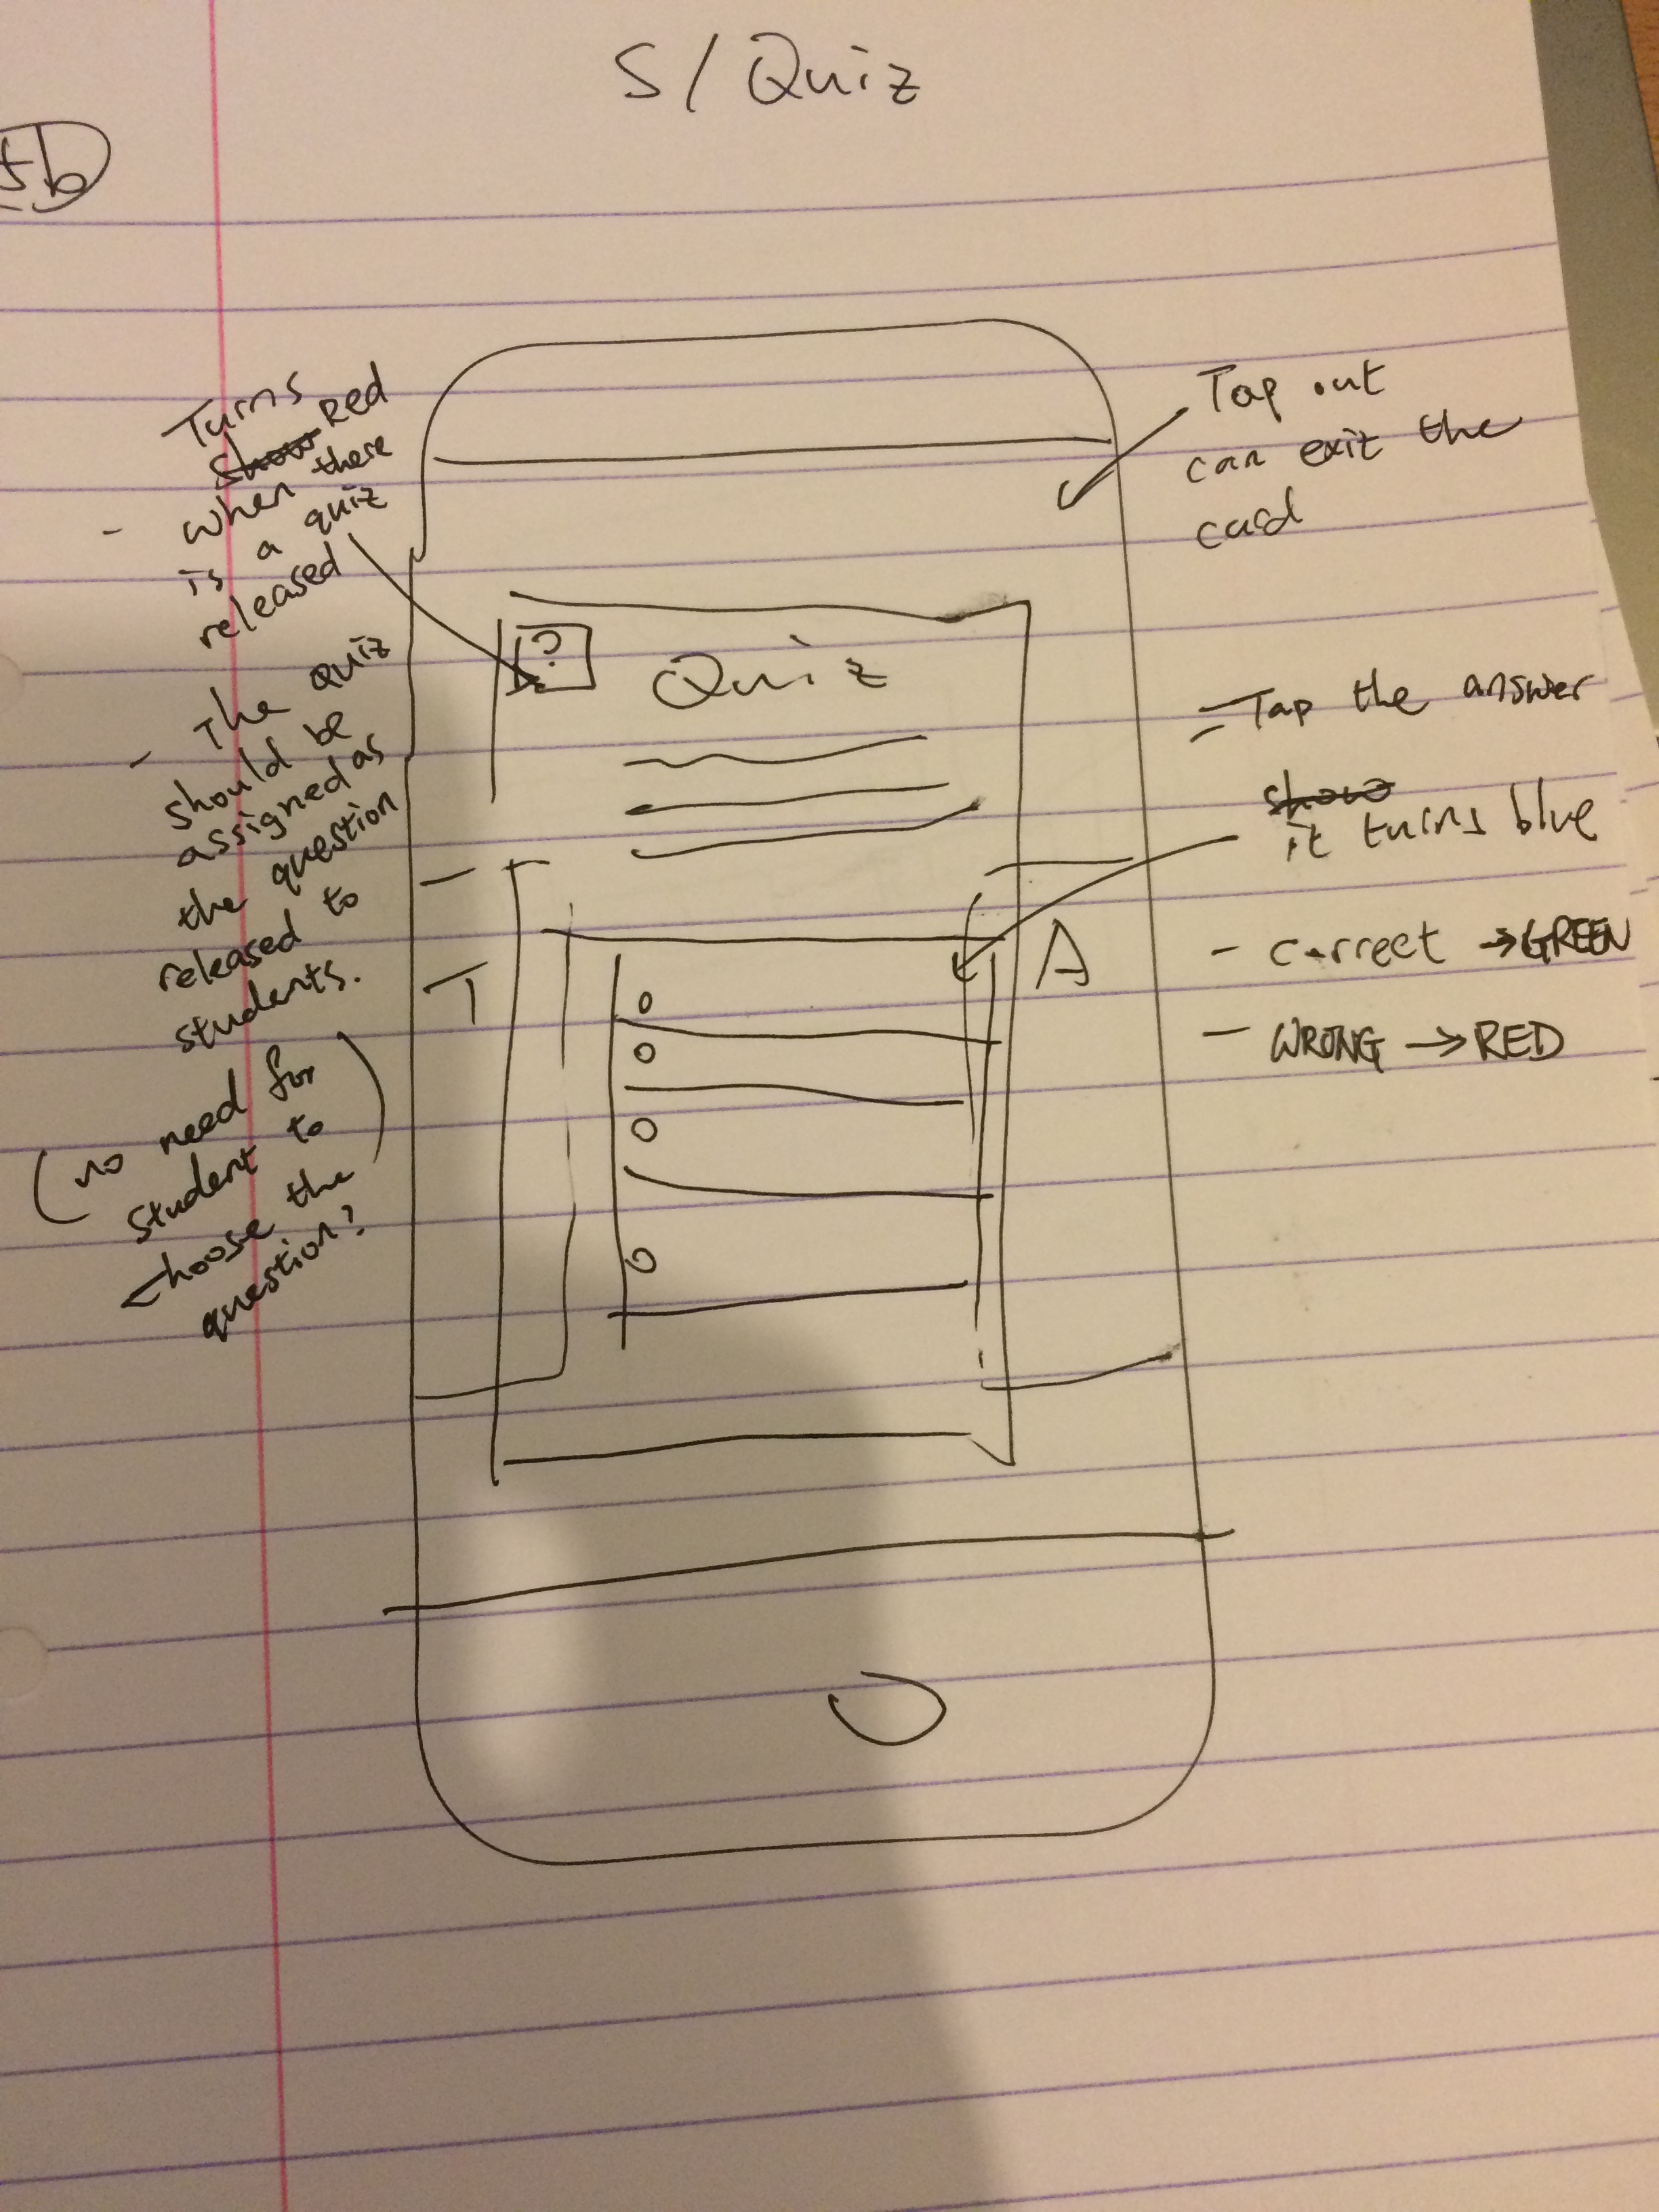 S/Quiz
5b
Turns
show Red
- when there
is a quiz
released
- The quiz
should be
assigned as
the question
released to
students.
(no need for
student to
choose the
question?)
?
Quiz
T
A
Tap out
can exit the
card
- Tap the answer
show
it turns blue
- correct → GREEN
- WRONG → RED